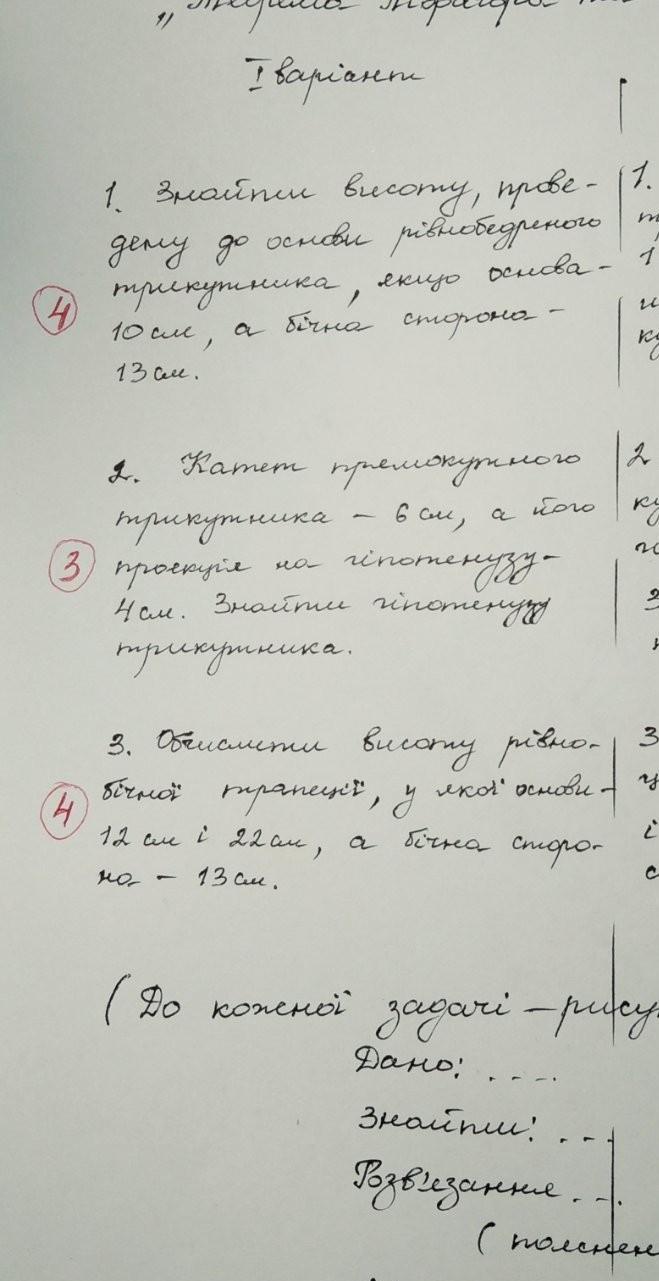 „Теорема Піфагора
I варіант
1. Знайти висоту, прове-
дену до основи рівнобедреного
трикутника, якщо основа -
4
10 см, а бічна сторона -
13 см.
2. Катет прямокутного
трикутника - 6 см, а його
3
проекція на гіпотенузу -
4 см. Знайти гіпотенузу
трикутника.
3. Обчислити висоту рівно-
бічної трапеції, у якої основи -
4
12 см і 22 см, а бічна сторо-
на - 13 см.
(До кожної задачі - рису
Дано: ....
Знайти: ...
Розв'язання...
(пояснен
1.
1
2
ку
3
3
і
с